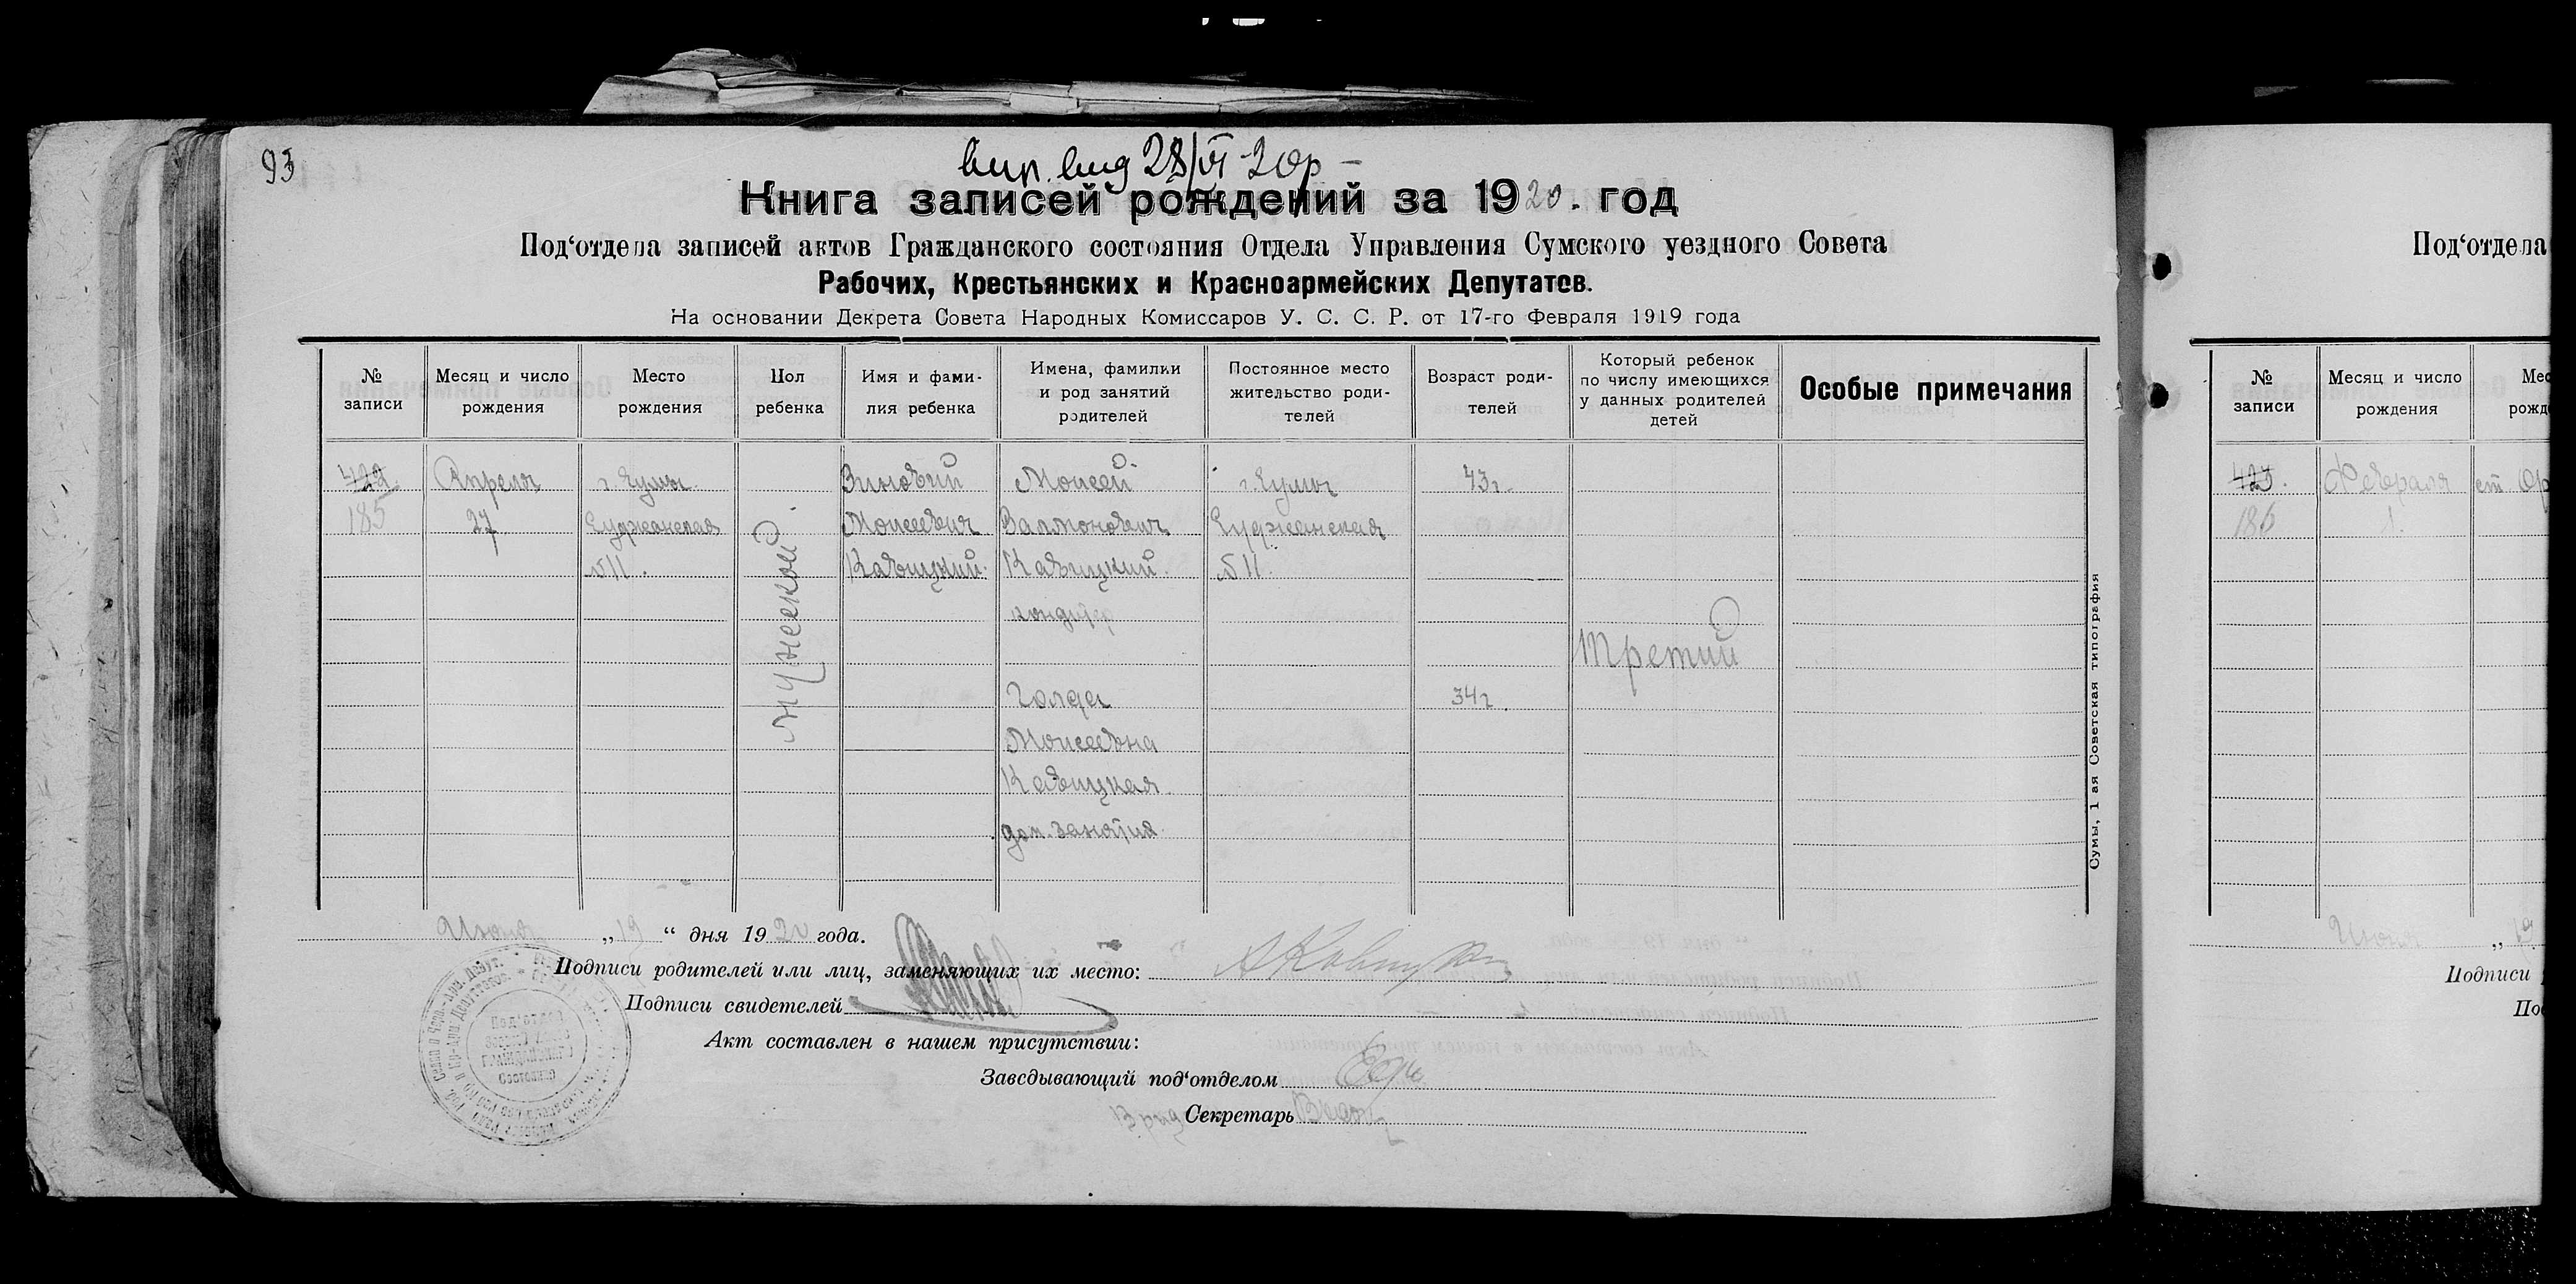 93
вип. вид 28/VI 20р –
Книга записей рождений за 1920. год
Под‘отдела записей актов Гражданского состояния Отдела Управления Сумского уездного Совета
Рабочих, Крестьянских и Красноармейских Депутатов.
На основании Декрета Совета Народных Комиссаров У. С. С. Р. от 17-го Февраля 1919 года
№ записи
Месяц и число рождения
Место рождения
Пол ребенка
Имя и фами-
лия ребенка
Имена, фамилии
и род занятий
родителей
Постоянное место
жительство роди-
телей
Возраст роди-
телей
Который ребенок
по числу имеющихся
у данных родителей
детей
Особые примечания
422
185
Апреля
27
г. Сумы
Суджанская
№11.
Мужеской
Зиновий
Моисеевич
Кавицкий.
Моисей
Кавицкий.
кондитер
Голда
Моисеевна
Кавицкая
дом. занятия.
г. Сумы
Суджанская
№11.
43г.
34г.
Третий
Сумы, 1 ая Советская типография
Июня „19“ дня 1920 года.
Подписи родителей или лиц, заменяющих их место:
Подписи свидетелей
Акт составлен в нашем присутствии:
Заведывающий под‘отделом
Врид Секретарь
Под‘отдел
Состояния
Под‘отдела
№ записи
Месяц и число рождения
Мес
рожд
423.
186
Февраля
1.
ст.
Июня „19
Подписи
По